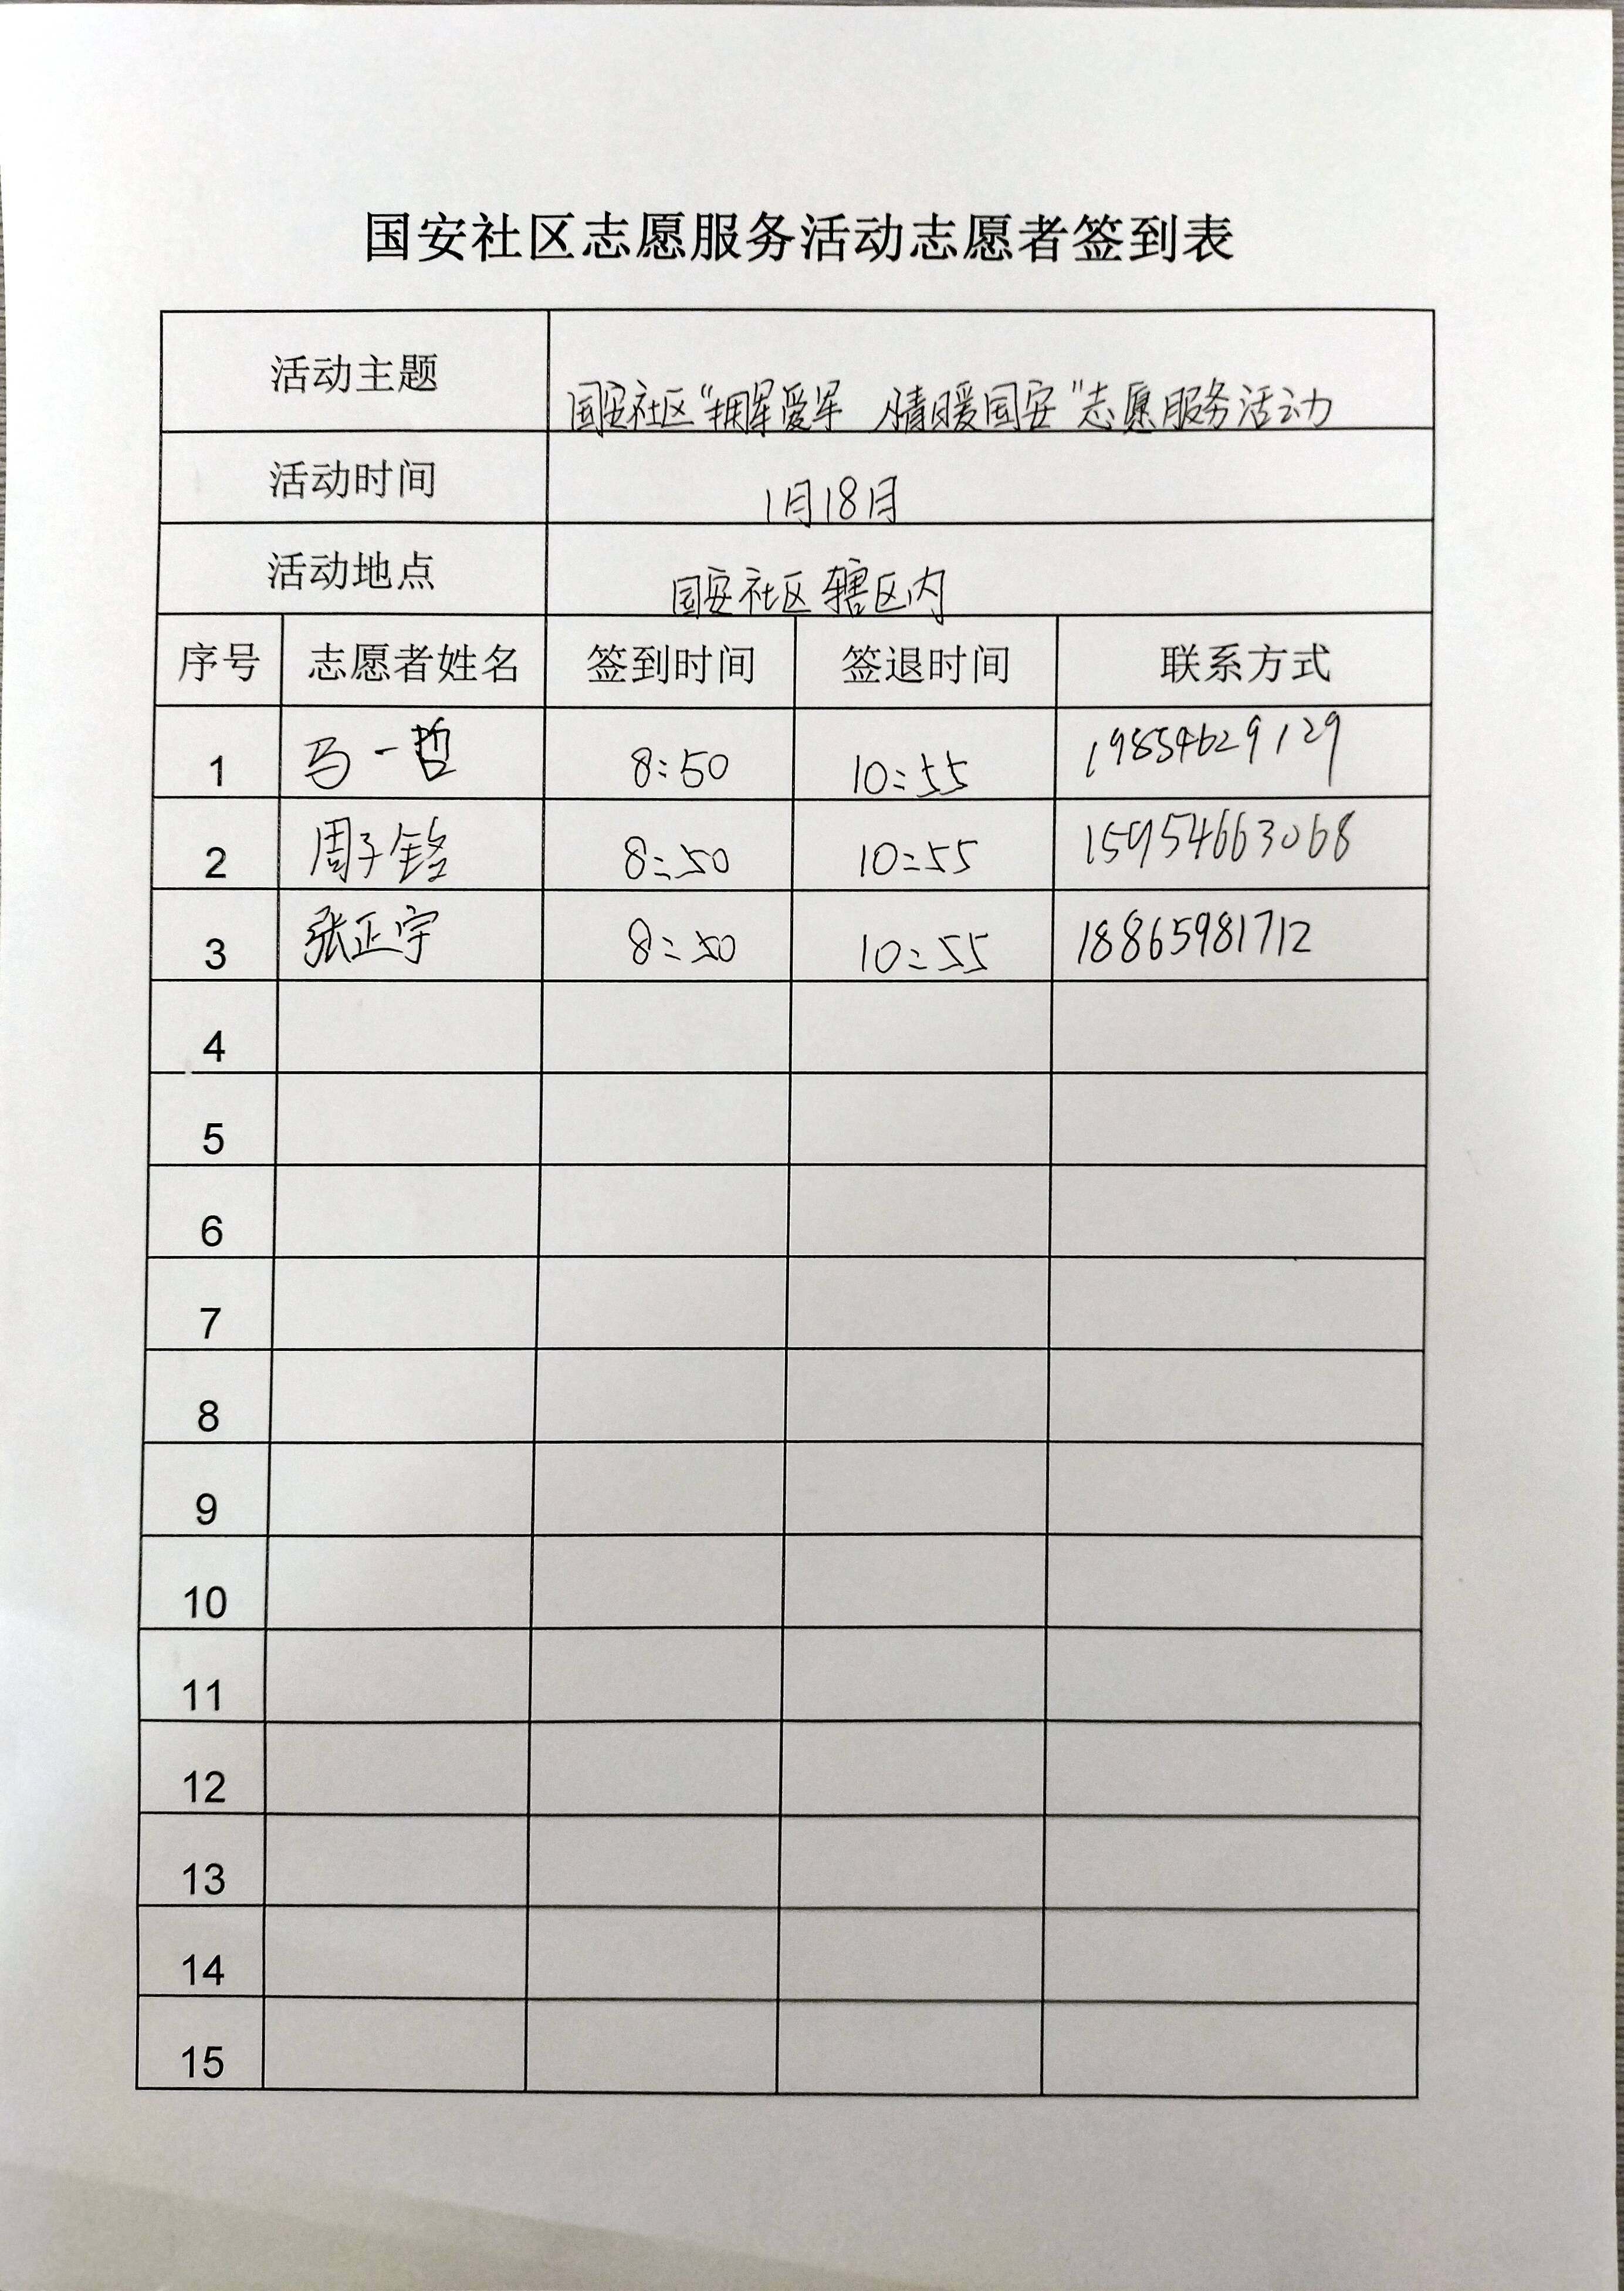 国安社区志愿服务活动志愿者签到表
活动主题 国安社区“拥军爱军 情暖国安”志愿服务活动
活动时间 1月18日
活动地点 国安社区辖区内
序号 志愿者姓名 签到时间 签退时间 联系方式
1 马一哲 8:50 10:55 19854629129
2 周子铭 8:50 10:55 15954663068
3 张正宇 8:50 10:55 18865981712
4
5
6
7
8
9
10
11
12
13
14
15